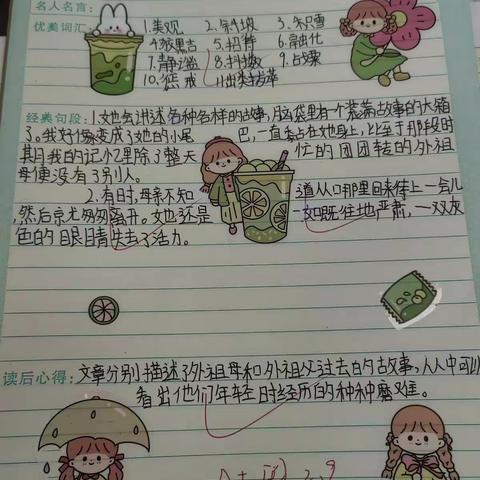 名人名言：
优美词汇：1.美观 2.斜坡 3.积雪
4.狡黠 5.招待 6.融化
7.静谧 8.抖擞 9.战栗
10.惩戒 11.出类拔萃
经典句段：1.她会讲述各种各样的故事，脑袋里有一个装满故事的大箱
了。我好像变成了她的小尾巴，一直黏在她身上，比至于那段时
其月我的记忆里除了整天忙的团团转的外祖
母便没有了别人。
2.有时，母亲不知道从哪里回来待上一会儿
,然后匆匆离开。她还是一如既往地严肃，一双灰
色的眼睛失去了活力。
读后心得：文章分别描述了外祖母和外祖父过去的故事，从中可以
看出他们年轻时经历的种种磨难。